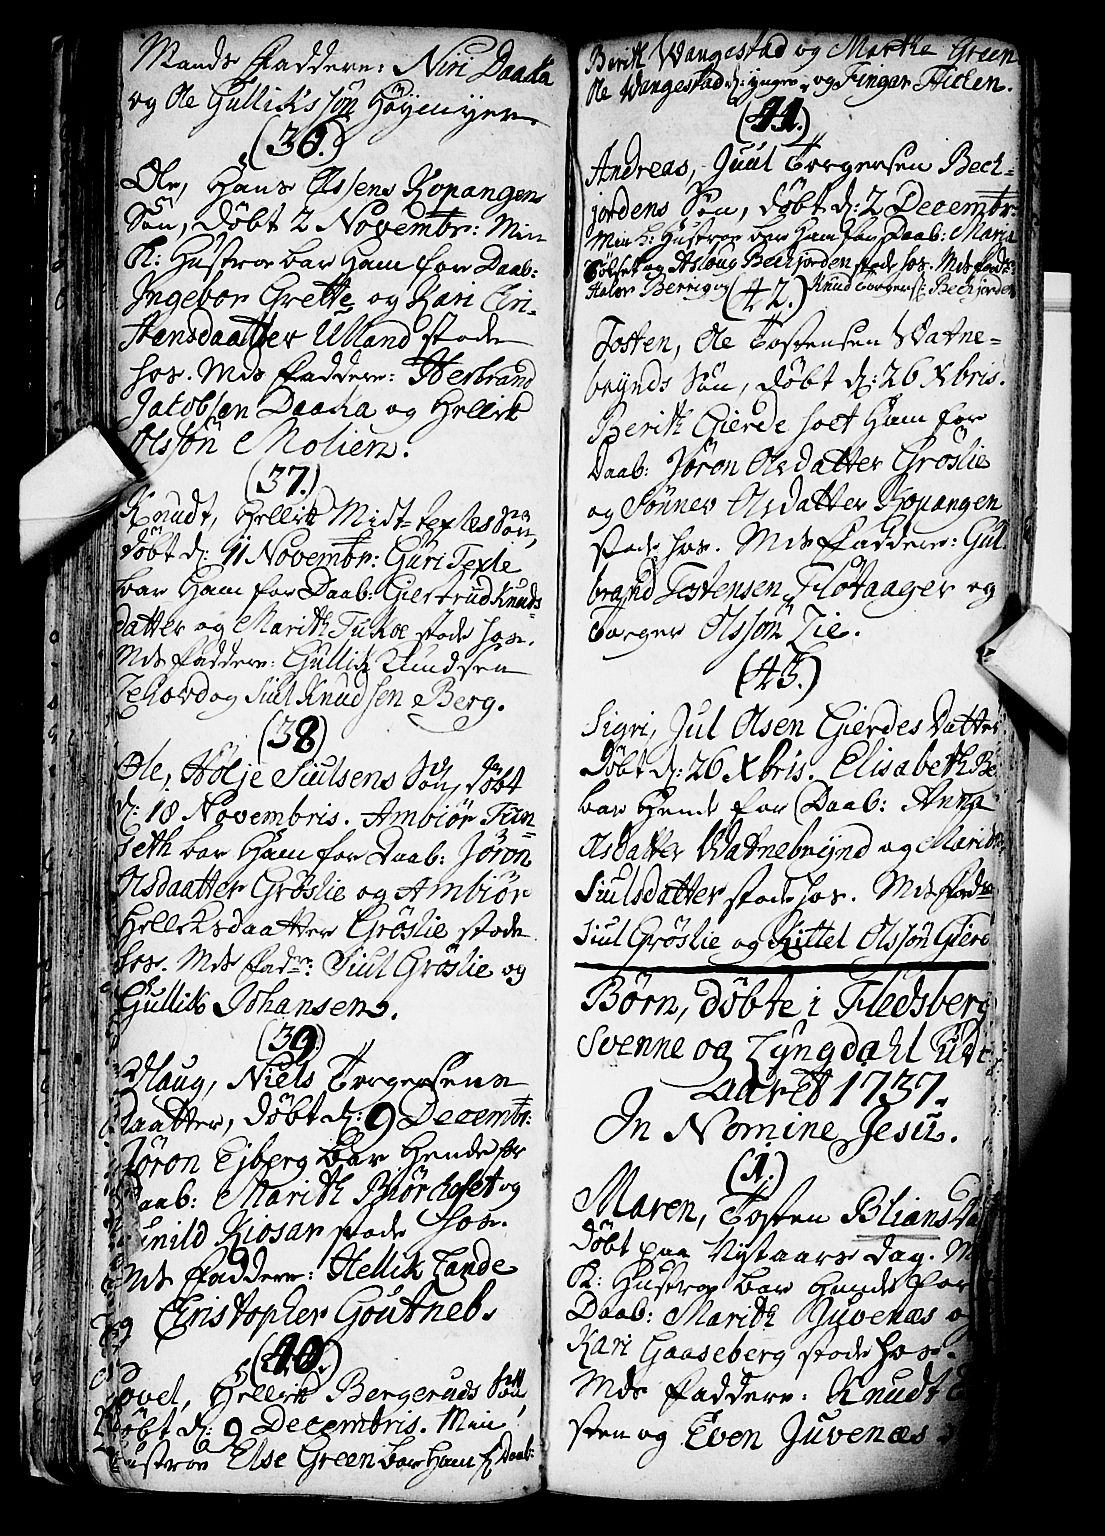 Mands Faddere: Niri Daaka
og Ole Gulliksøn Høymyer.
(36.)
Ole, Hans Olssens Kopangens
Søn, døbt 2 Novembr: Min
K: Hustroe bar Ham for Daab:
Ingebor Grette og Kari Cri-
stensdaatter Ulland stode
hos. Mds Faddere: Herbrand
Jacobsen Daaka og Hellik
Olssøn Molien.
(37.)
Knudt, Hellik Midt-texles Søn,
døbt d: 11 Novembr: Guri Texle
bar Ham for Daab: Giertrud Knuds-
datter og Marith Tukoe stode hos.
Mds Faddere: Gullik Knudsen
og Siul Knudsen Berg.
(38)
Ole, Hølje Siulsens Søn, døbt
d: 18 Novembris. Ambiør Fun-
seth bar Ham for Daab: Jøron
Olsdaatter Grøslie og Ambiør
Helleksdaatter Grøslie stode
hos. Mds Fadre: Siul Grøslie og
Gullik Johansen.
(39)
Olaug, Niels Torgersens
Daatter, døbt d: 9 Decembr:
Jøron Ejberg bar Hende for
Daab: Marith Biørkoset og
Gunild Kiosar stode hos.
Mds Faddere: Hellik Lande
Christopher Goutneb.
(40.)
Povel, Hellik Bergeruds Søn,
døbt d: 9 Decembris. Min
Hustroe Else Green bar Ham f Daab:
Berith Wangestad og Marthe Green
Ole Wangestad d: ynger, og Fingar Fidlen.
(41.)
Andreas, Juul Torgersen Bech-
jordens Søn, døbt d: 2 Decembr:
Min h: Hustroe bar Ham for Daab: Maria
og Asloug Bechjorden stode hos. Mds Fadre:
Halvor Berrig og Knud Torgers: Bechjorden
(42.)
Tosten, Ole Tostensen Watne-
brynds Søn, døbt d: 26 Xbris.
Berith Gierde hoet Ham for
Daab: Jøron Olsdatter Grøslie
og Sønnev Olsdatter Kopangen
stode hos. Mds Faddere: Gul
brand Tostensen Flotaager og
Torger Olssøn Lie.
(43.)
Sigri, Jul Olsen Gierdes Datter
Døbt d: 26 Xbris. Elisabeth Be
bar Hende for Daab: Anna
Olsdatter Watnebrynd og Marith
Siulsdatter stode hos. Mds Fadre
Siul Grøslie og Kittel Olssøn Gierd
Børn, døbte i Fledsberg
Svenne og Lyngdahl Udi
aaret 1737.
In Nomine Jesu.
(1.)
Maren, Tosten Blians Da
Døbt paa Nytaars dag. M
K: Hustroe bar Hende for
Daab: Marith Juvenæs og
Kari Gaaseberg stode hos.
Mds Faddere: Knudt
sten og Even Juvenæs